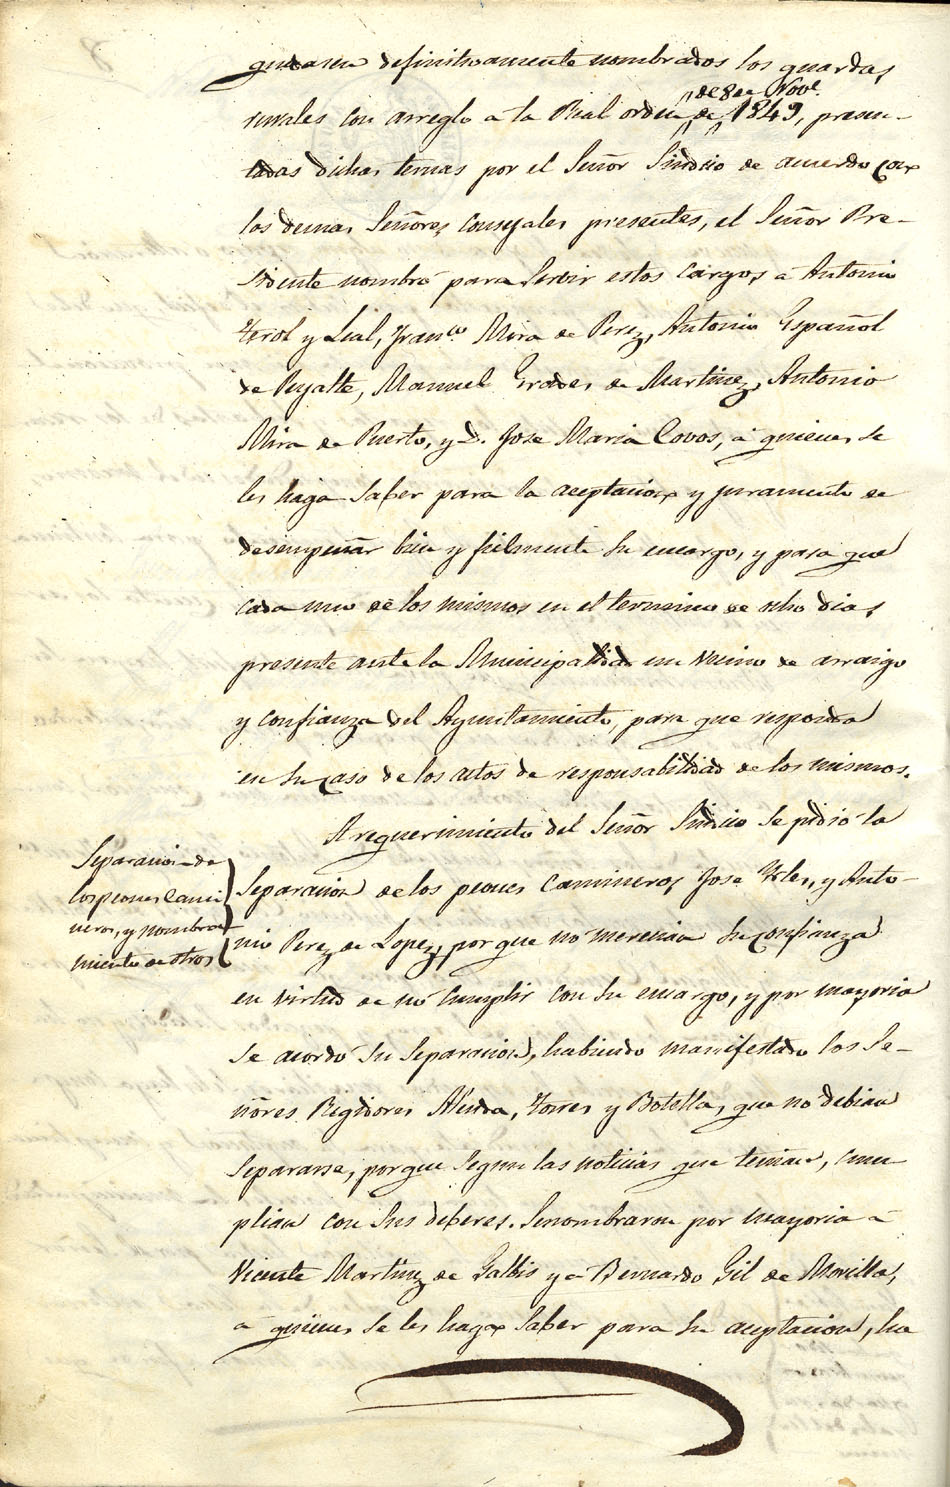 quedasen definitivamente nombrados los guardas
de 8 de Nov.e
rurales con arreglo a la Real orden de 1849, presen-
tadas dichas ternas por el Señor Sindico de acuerdo con
los demas Señores Consejales presentes, el Señor Pre-
sidente nombró para servir estos cargos a Antonio
Terol y Leal, Fran.co Mira de Perez, Antonio Español
de Ruyalte, Manuel Grades de Martinez, Antonio
Mira de Puerto, y D. Jose Maria Covos, á quienes se
les haga saber para la aceptacion y juramento de
desempeñar bien y fielmente su encargo, y para que
cada uno de los mismos en el termino de ocho dias
presente ante la Municipalidad un vecino de arraigo
y confianza del Ayuntamiento, para que responda
en su caso de los actos de responsabilidad de los mismos.
A requerimiento del Señor Sindico se pidió la
Separacion de
los peones Cami
neros, y nombra
miento de otros
Separacion de los peones Camineros Jose y Anto-
nio Perez de Lopez, por que no merecian su confianza
en virtud de no cumplir con su encargo, y por mayoria
se acordó su separacion, habiendo manifestado los Se-
ñores Regidores Alenda, Torres y Botella, que no debian
separarse, porque segun las noticias que tenian, cum
plian con sus deberes. Se nombraron por mayoria a
Vicente Martinez de Galbis y a Bernardo Gil de Movilla,
a quienes se les haga saber para su aceptacion, ha